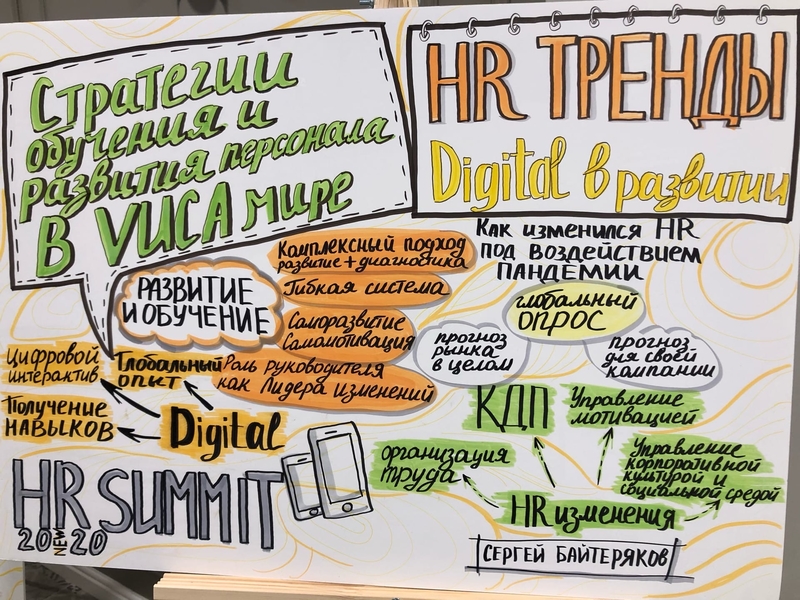 Стратегии
обучения и
развития персонала
в VUCA мире
HR ТРЕНДЫ
Digital в развитии
РАЗВИТИЕ
И ОБУЧЕНИЕ
Комплексный подход
развитие + диагностика
Гибкая система
Саморазвитие
Самомотивация
Роль руководителя
как Лидера изменений
Цифровой
интерактив
Глобальный
опыт
Получение
НАВЫКОВ
Digital
HR SUMMIT
20 NEW! 20
Как изменился HR
под воздействием
пандемии
глобальный
опрос
прогноз
рынка
в целом
прогноз
для своей
компании
КДП
Управление
мотивацией
организация
труда
Управление
корпоративной
культурой и
социальной средой
HR изменения
СЕРГЕЙ БАЙТЕРЯКОВ